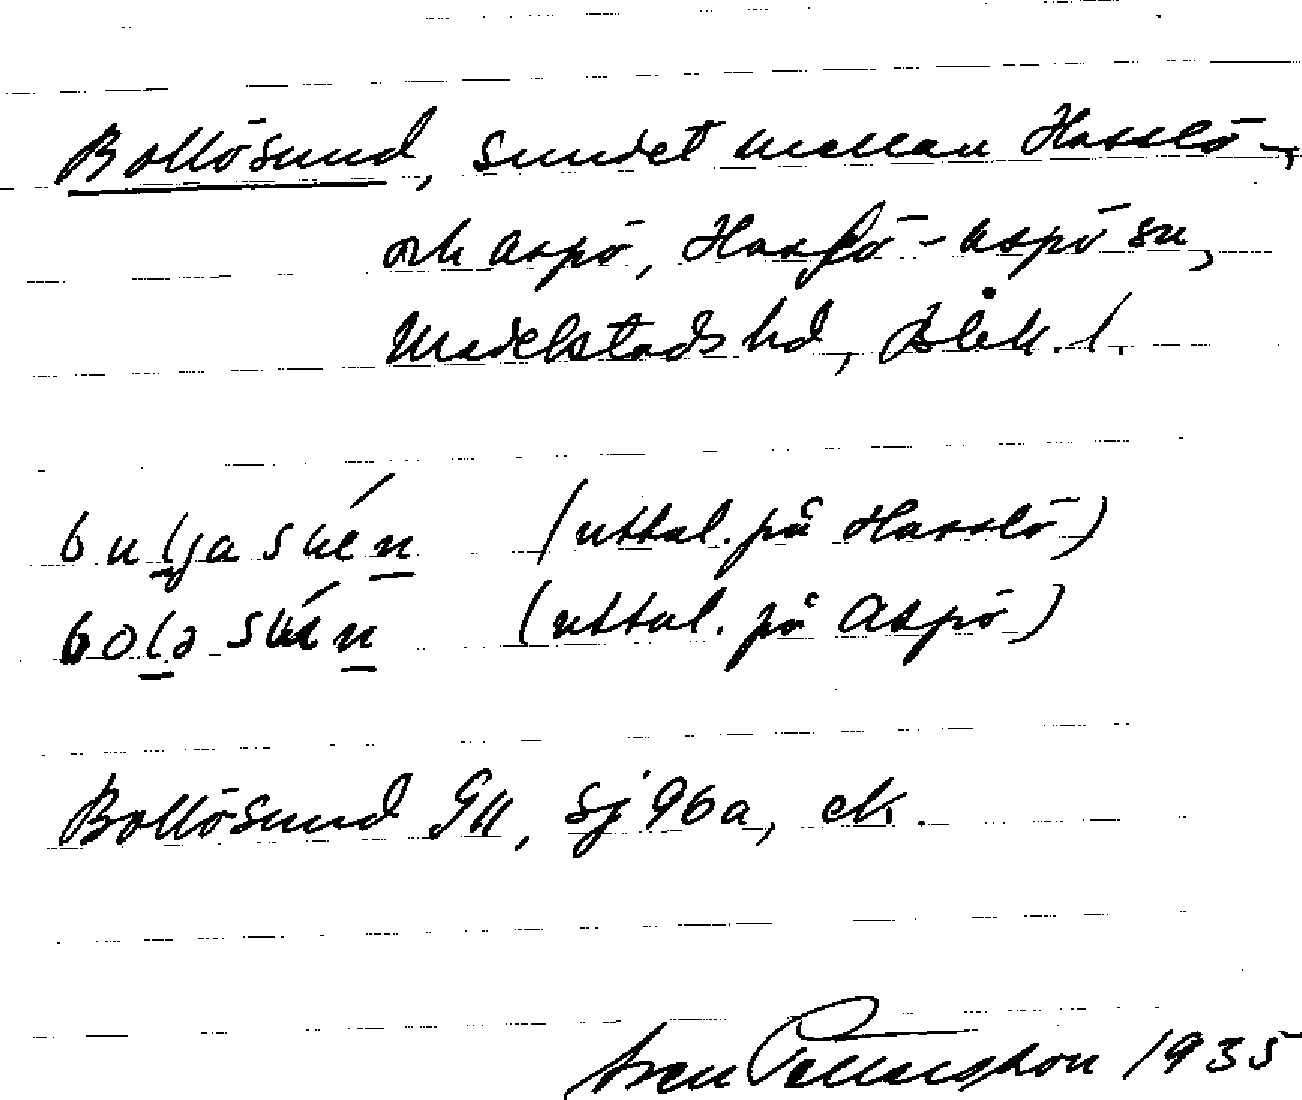 Bollösund, sundet mellan Hasslö-
och Aspö, Hasslö-Aspö sn,
Medelstads hd, Blek. l.
(uttal. på Hasslö)
(uttal. på Aspö)
Bollösund GK, Sj 96a, ek.
Sven Pettersson 1935